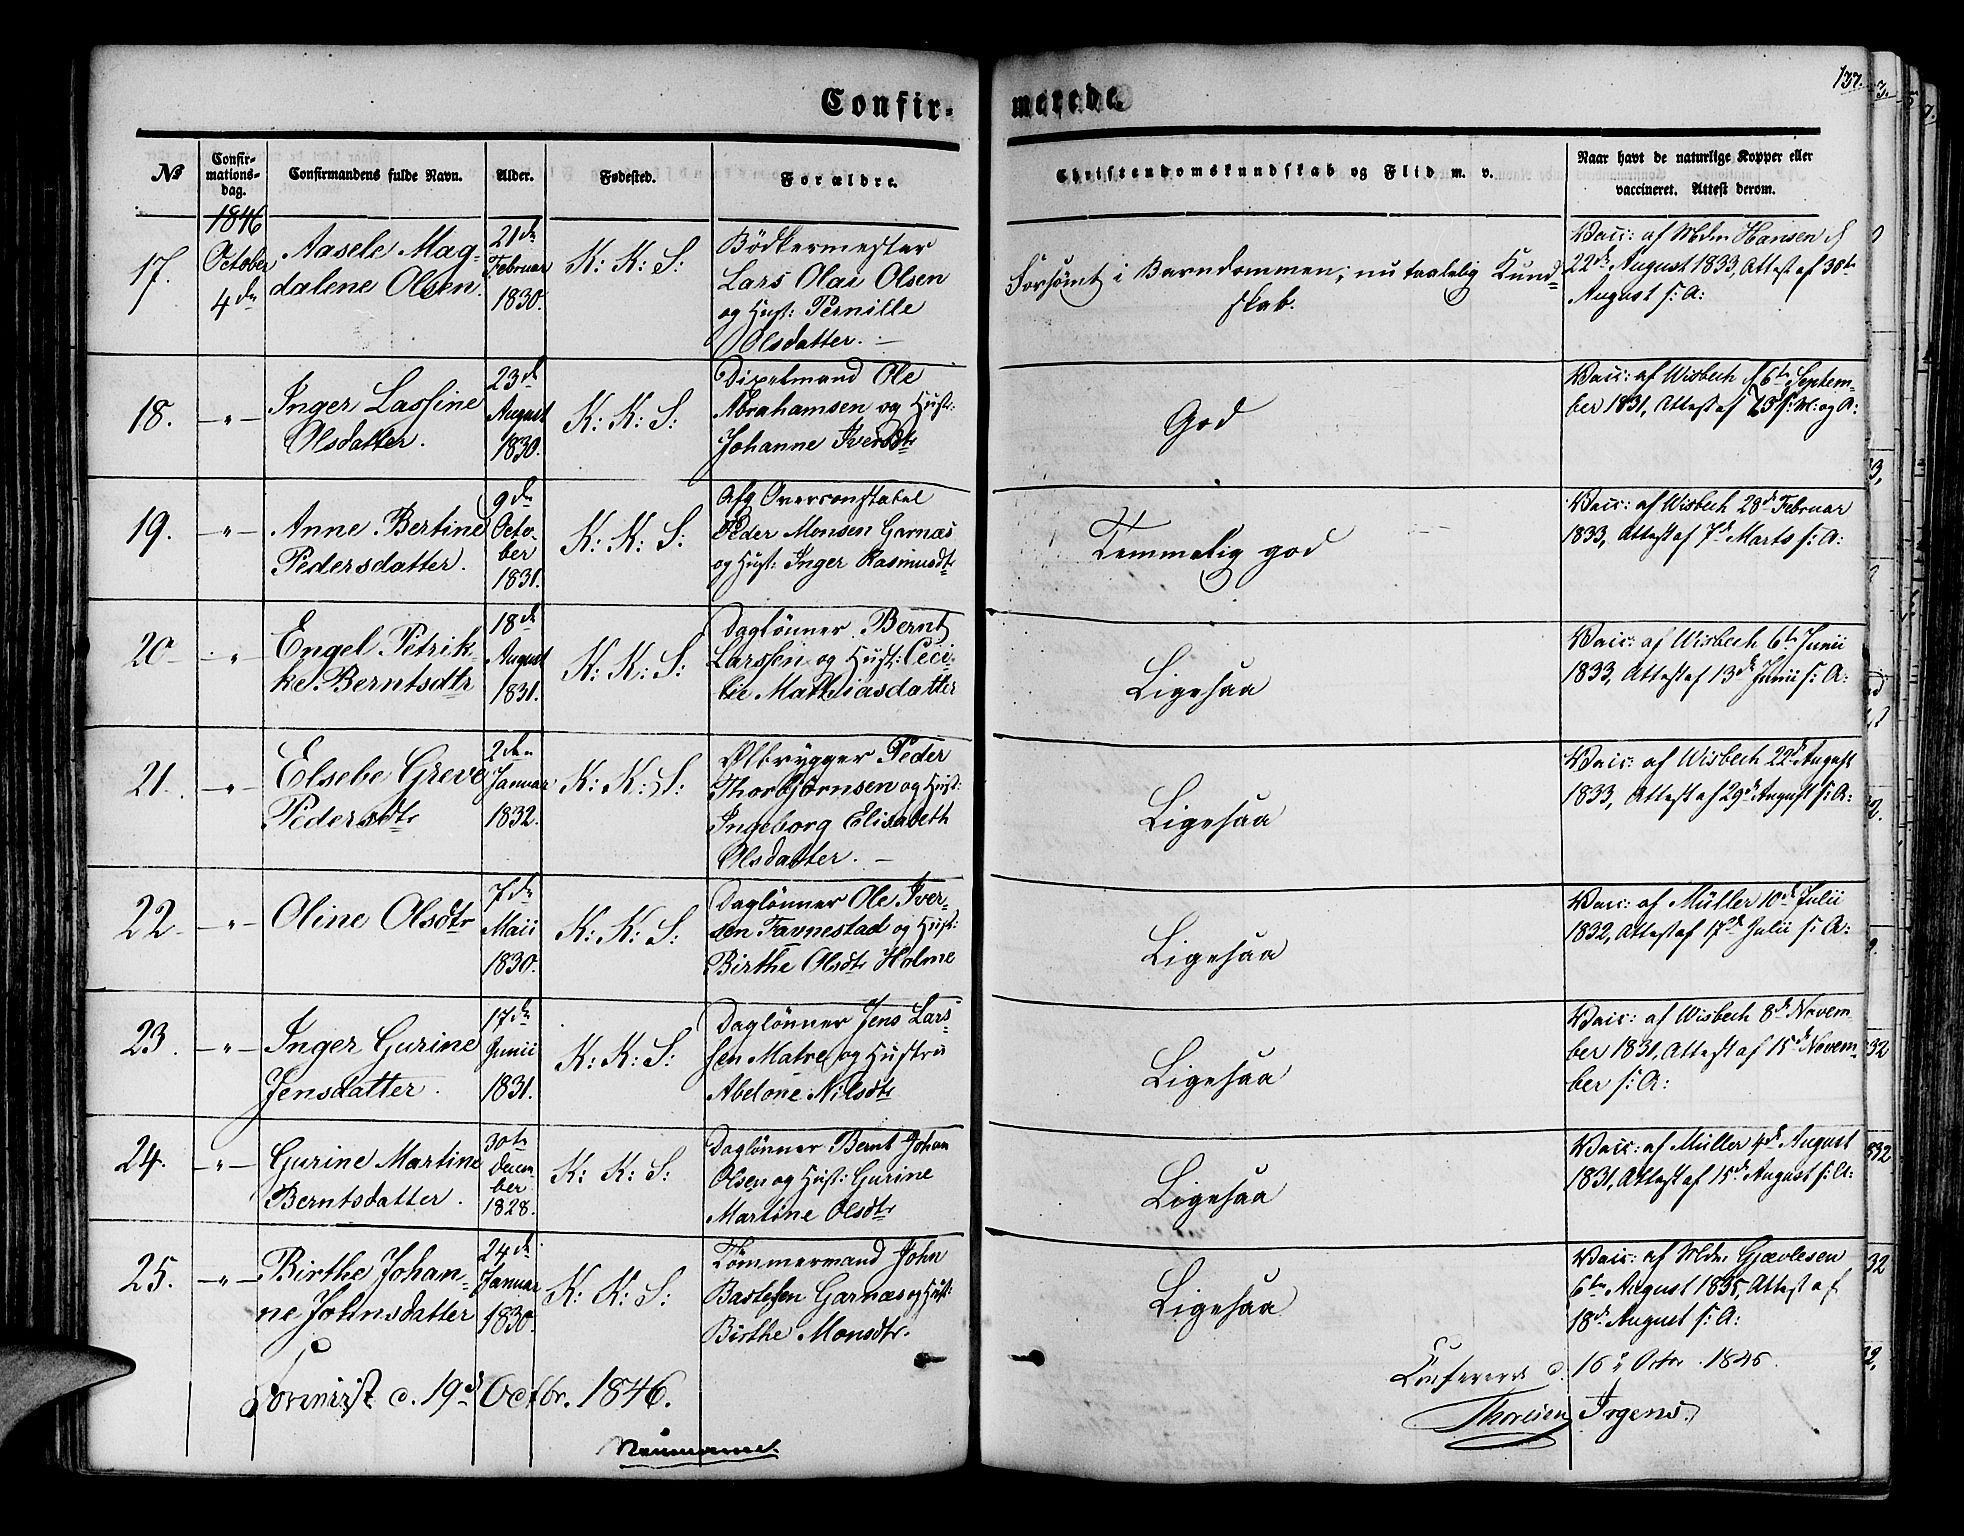 Confir-
merede
137.
№
Confir-
mations-
dag.
Confirmandens fulde Navn.
Alder.
Fødested.
Forældre.
Christendomskundskab og Flid m. v.
Naar havt de naturlige Kopper eller
vaccineret. Attest derom.
1846
October
4de
17.
Aasele Mag-
dalene Olsen.
21de
Februar
1830.
K: K: S:
Bødkermester
Lars Olai Olsen
og Hust: Pernille
Olsdatter. —
Forsømt i Barndommen; nu taalelig Kund-
skab.
Vacc: af Mdm Hansen d
22de August 1833, Attest af 30te
August s: A:
18.
—"—
Inger Lassine
Olsdatter.
23d
August
1830.
K: K: S:
Dixelmand Ole
Abrahamsen og Hust:
Johanne Iversdtr
God
Vacc: af Wisbech d 6te Septem-
ber 1831, Attest af 13d s: M: og A:
19.
—"—
Anne Bertine
Pedersdatter.
9de
Octo-
ber
1831.
K: K: S:
Afg Overconstabel
Peder Monsen Garnæs
og Hust: Inger Rasmusdtr
Temmelig god
Vacc: af Wisbech 28d Februar
1833, Attest af 7d Marts s: A:
20
—"—
Engel Petrik-
ke Berntsdtr
18de
August
1831.
K: K: S:
Daglønner Bernt
Larssen og Hust: Ceci-
lie Mathiasdatter
Ligesaa
Vacc: af Wisbech 6te Junii
1833, Attest af 13de Junii s: A:
21.
—"—
Elsebe Greve
Pedersdtr
2den
Januar
1832.
K: K: S:
Ølbrygger Peder
Thorbjørnsen og Hust:
Ingeborg Elisabeth
Olsdatter. —
Ligesaa
Vacc: af Wisbech 22d August
1833, Attest af 29d August s: A:
22
—"—
Oline Olsdtr
7de
Maii
1830.
K: K: S:
Daglønner Ole Iver-
sen Favnestad og Hust:
Birthe Olsdtr Holme
Ligesaa
Vacc: af Müller 10d Julii
1832, Attest af 17de Julii s: A:
23.
—"—
Inger Gurine
Jensdatter.
17de
Junii
1831.
K: K: S:
Daglønner Jens Lars-
sen Matre og Hustru
Abelone Nilsdtr
Ligesaa
Vacc: af Wisbech 8d Novem-
ber 1831, Attest af 15d Novem-
ber s: A:
24.
—"—
Gurine Martine
Berntsdatter.
30te
Decem-
ber
1828.
K: K: S:
Daglønner Bernt Johan
Olsen og Hust: Gurine
Martine Olsdtr
Ligesaa
Vacc: af Müller 4de August
1831, Attest af 15d August s: A:
25.
—"—
Birthe Johan-
ne Johnsdatter
24de
Januar
1830.
K: K: S:
Tømmermand John
Bastesen Garnæs og Hust:
Birthe Monsdtr.
Ligesaa
Vacc: af Mdm Gjævlesen
6te August 1835, Attest af
18d August s: A:
d. 19d Octbr. 1846.
Neumann.
Confereret d. 16 Octbr. 1846.
Thoresen Irgens.